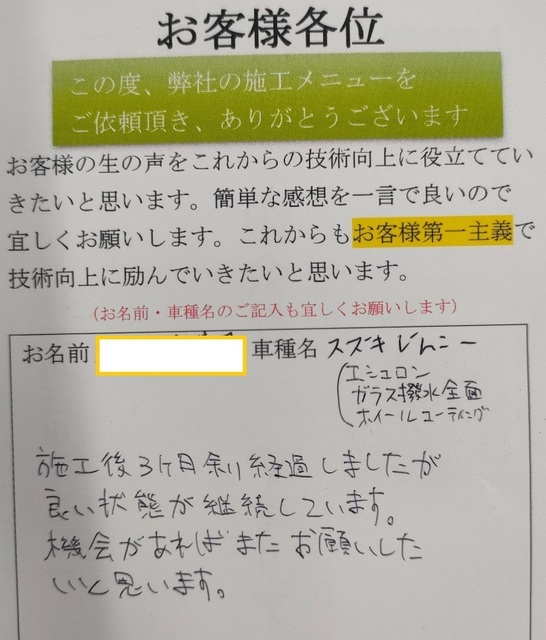 お客様各位
この度、弊社の施工メニューを
ご依頼頂き、ありがとうございます
お客様の生の声をこれからの技術向上に役立ててい
きたいと思います。簡単な感想を一言で良いので
宜しくお願いします。これからもお客様第一主義で
技術向上に励んでいきたいと思います。
(お名前・車種名のご記入も宜しくお願いします)
お名前 車種名 スズキじんニー
エシュロン
ガラス撥水全面
ホイールコーティング
施工後3ヶ月余り経過しましたが
良い状態が継続しています。
機会があればまたお願いした
いと思います。